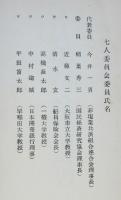 七人委員会委員氏名
代表委員 今井一男(非現業共済組合連合会理事長)
委員 稲葉秀三(国民経済研究協会理事長)
近藤文二(大阪市立大学教授)
清水玄(船員保険会会長)
高橋長太郎(一橋大学教授)
中村建城(日本開発銀行理事)
平田冨太郎(早稲田大学教授)